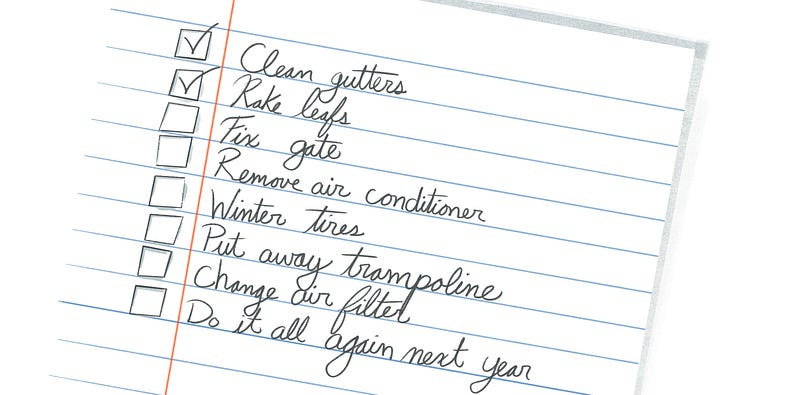 Clean gutters
Rake leafs
Fix gate
Remove air conditioner
Winter tires
Put away trampoline
Change air filter
Do it all again next year